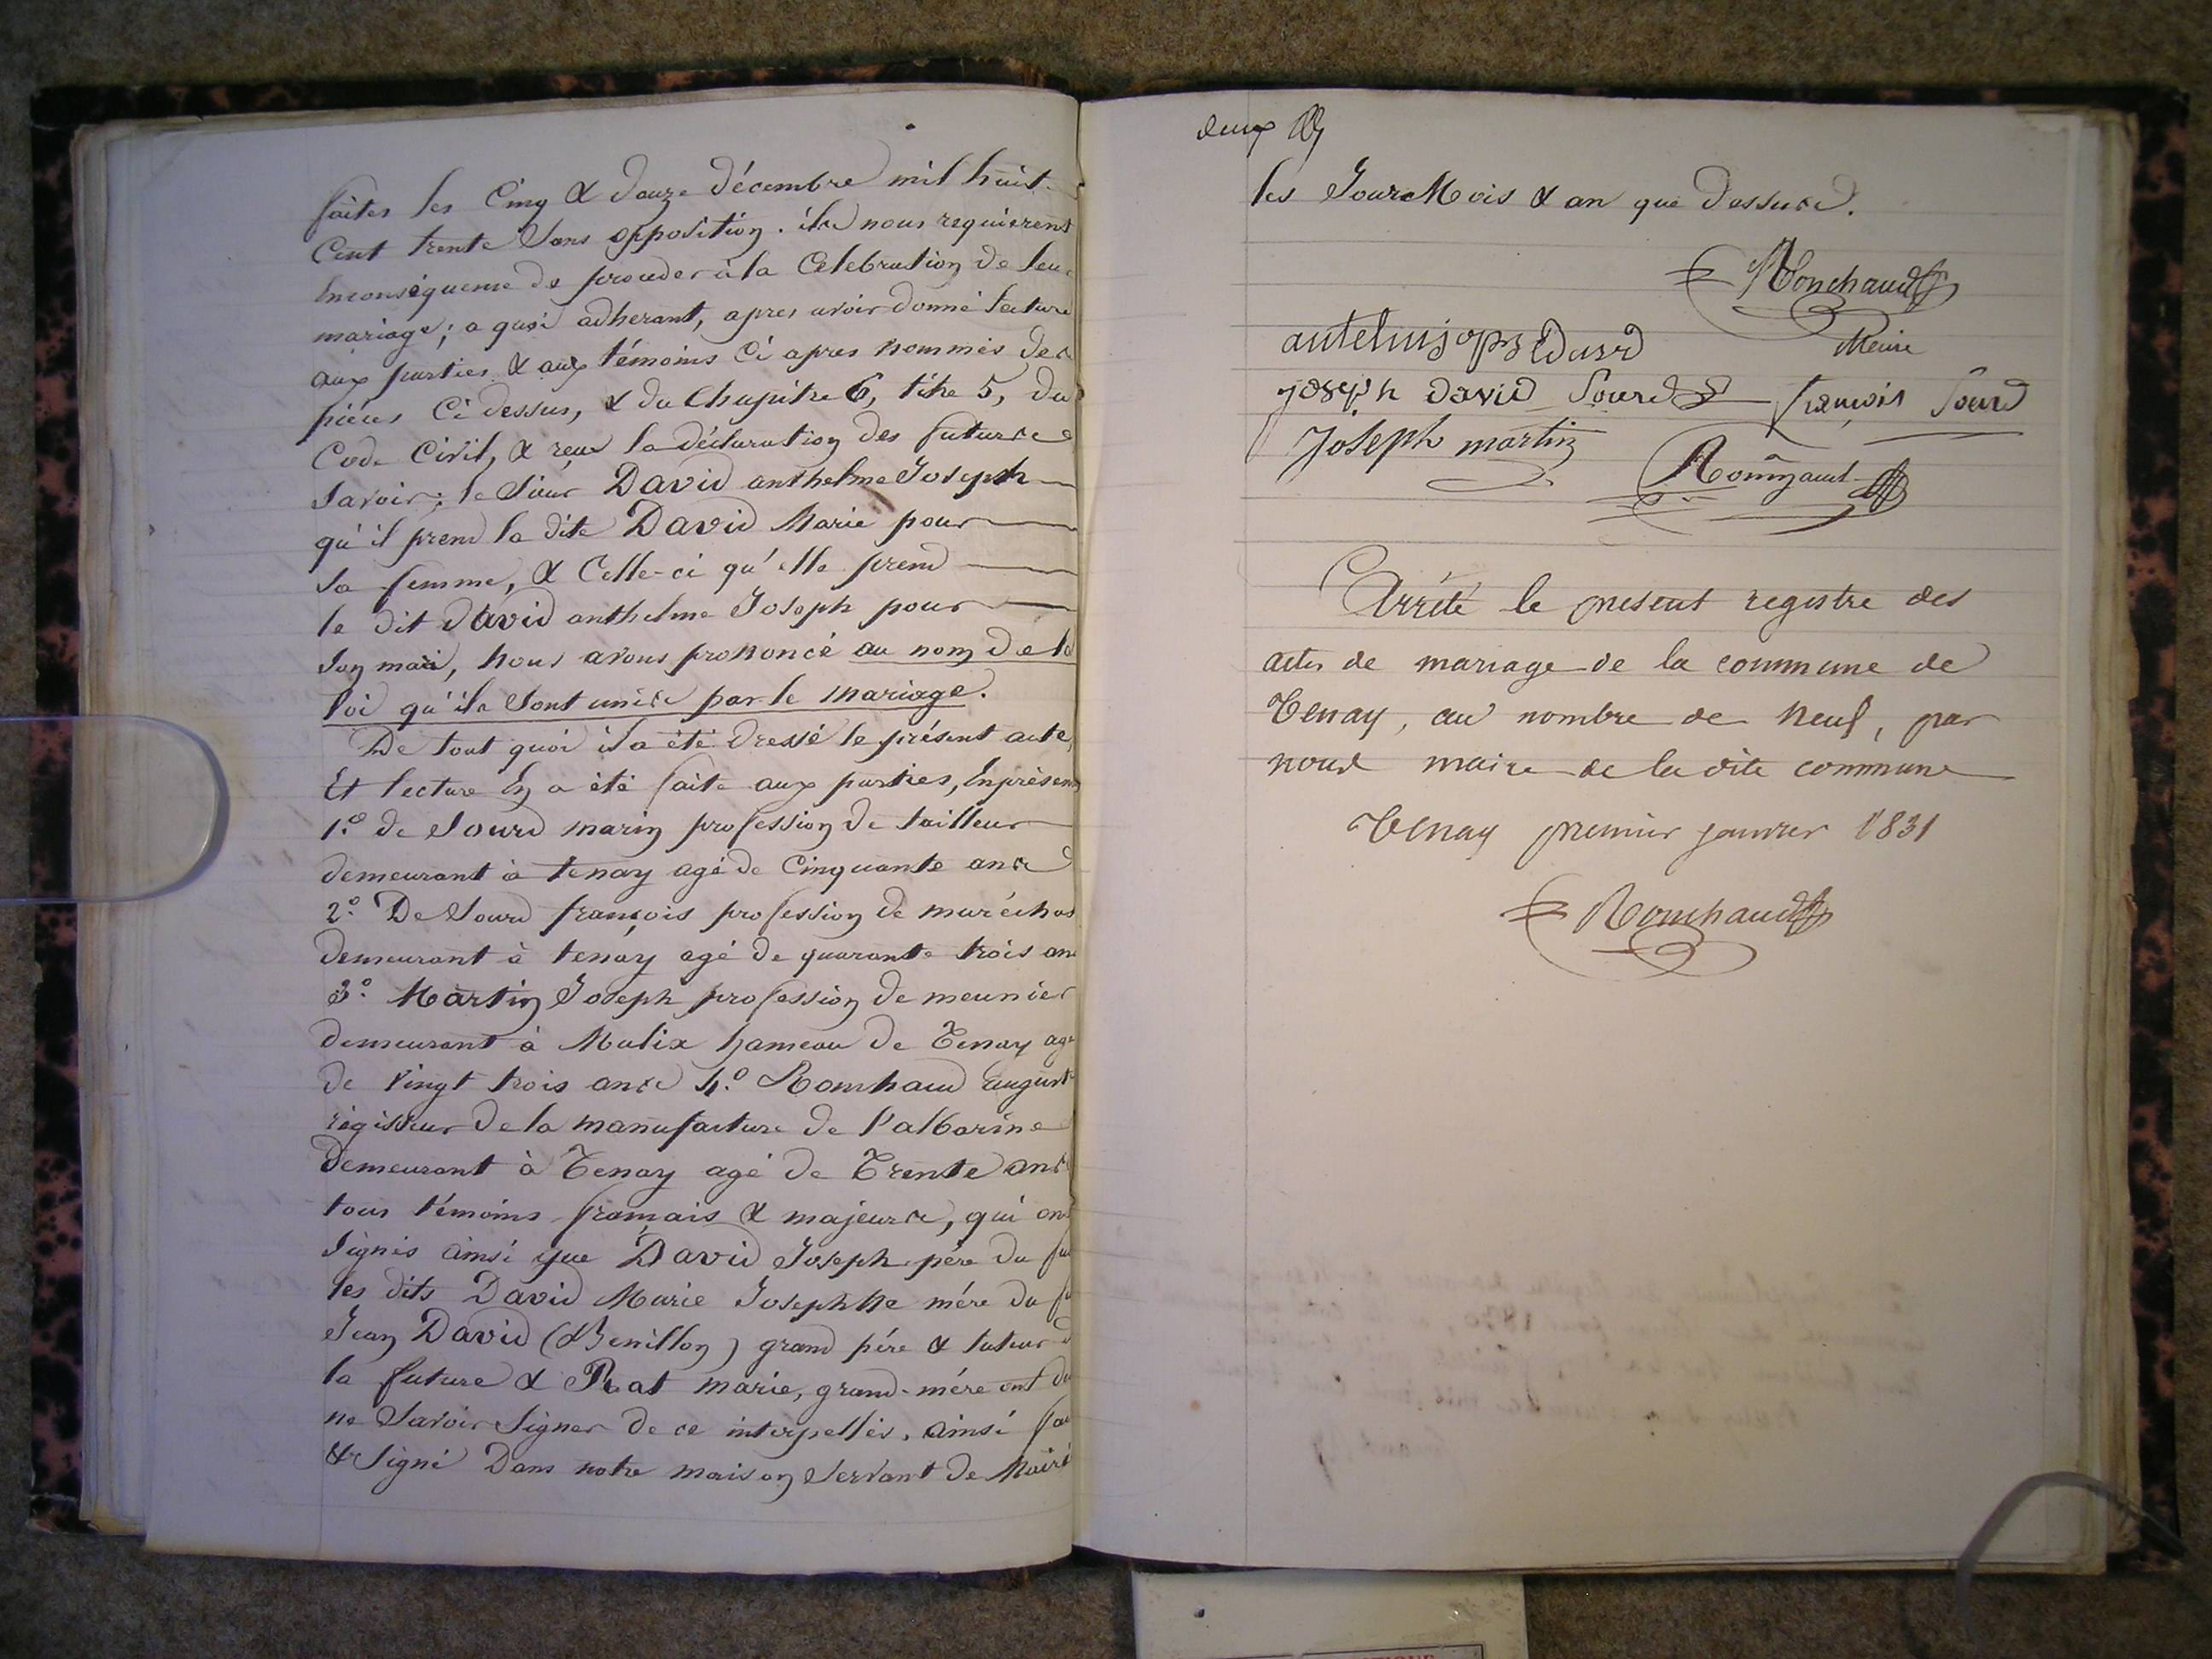 faites les Cinq & douze décembre mil huit
Cent trente Sans opposition. ils nous requierent
Enconséquence de proceder à la Célébration de leur
mariage; a quoi adherant, apres avoir donné lecture
aux parties & aux témoins Ci apres nommés des
pièces Ci dessus, & du Chapitre 6, titre 5, du
Code Civil, & reçu la déclaration des futurs
Savoir; le Sieur David anthelme Joseph
qu'il prend la dite David Marie pour
sa femme, & Celle-ci qu'elle prend
le dit David anthelme Joseph pour
son mari, nous avons prononcé au nom de la
loi qu'ils Sont unis par le mariage.
De tout quoi il a été dressé le présent acte,
Et lecture En a été faite aux parties, En présen
1.º de Sourd marin profession de tailleur
demeurant à tenay agé de Cinquante ans
2.º De Sourd françois profession de maréchal
demeurant à tenay agé de quarante trois ans
3.º Martin Joseph profession de meunier
demeurant à Malix hameau de Tenay agé
de Vingt trois ans 4.º Romchaud august
régisseur de la manufacture de l'albarine
demeurant à Tenay agé de Trente ans
tous témoins français & majeurs, qui ont
signés ainsi que David Joseph père du fu
les dits David Marie Josephte mère du fu
Jean David (Benillon) grand père & tuteur d
la future & Rat marie, grand-mère ont du
ne Savoir Signer de ce interpellés. ainsi fai
& Signé Dans notre maison Servant de Mairi
deux
les Jour Mois & an que dessus.
Ronchaud
Meire
joseph David Sourd françois Sourd
Joseph martin
Arrêté le present registre des
actes de mariage de la commune de
Tenay, au nombre de neuf, par
nous maire de la dite commune
Tenay premier janvier 1831
Ronchaud